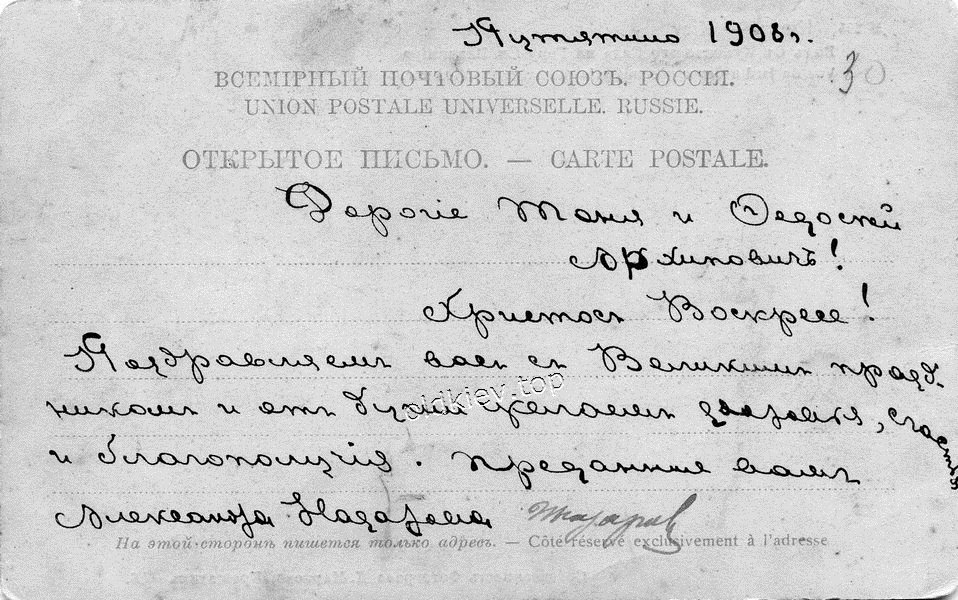 Путятино 1908 г.
30
ВСЕМІРНЫЙ ПОЧТОВЫЙ СОЮЗЪ. РОССІЯ.
UNION POSTALE UNIVERSELLE. RUSSIE.
ОТКРЫТОЕ ПИСЬМО. — CARTE POSTALE.
Дорогіе Таня и Ѳедосій
Архиповичъ!
Христосъ Воскресе!
Поздравляемъ васъ съ Великимъ празд-
никомъ и отъ души желаемъ здоровья, счастья
и благополучія. Преданные вамъ
Александра
На этой сторонѣ пишется только адресъ. — Côté réservé exclusivement à l'adresse
oldkiev.top